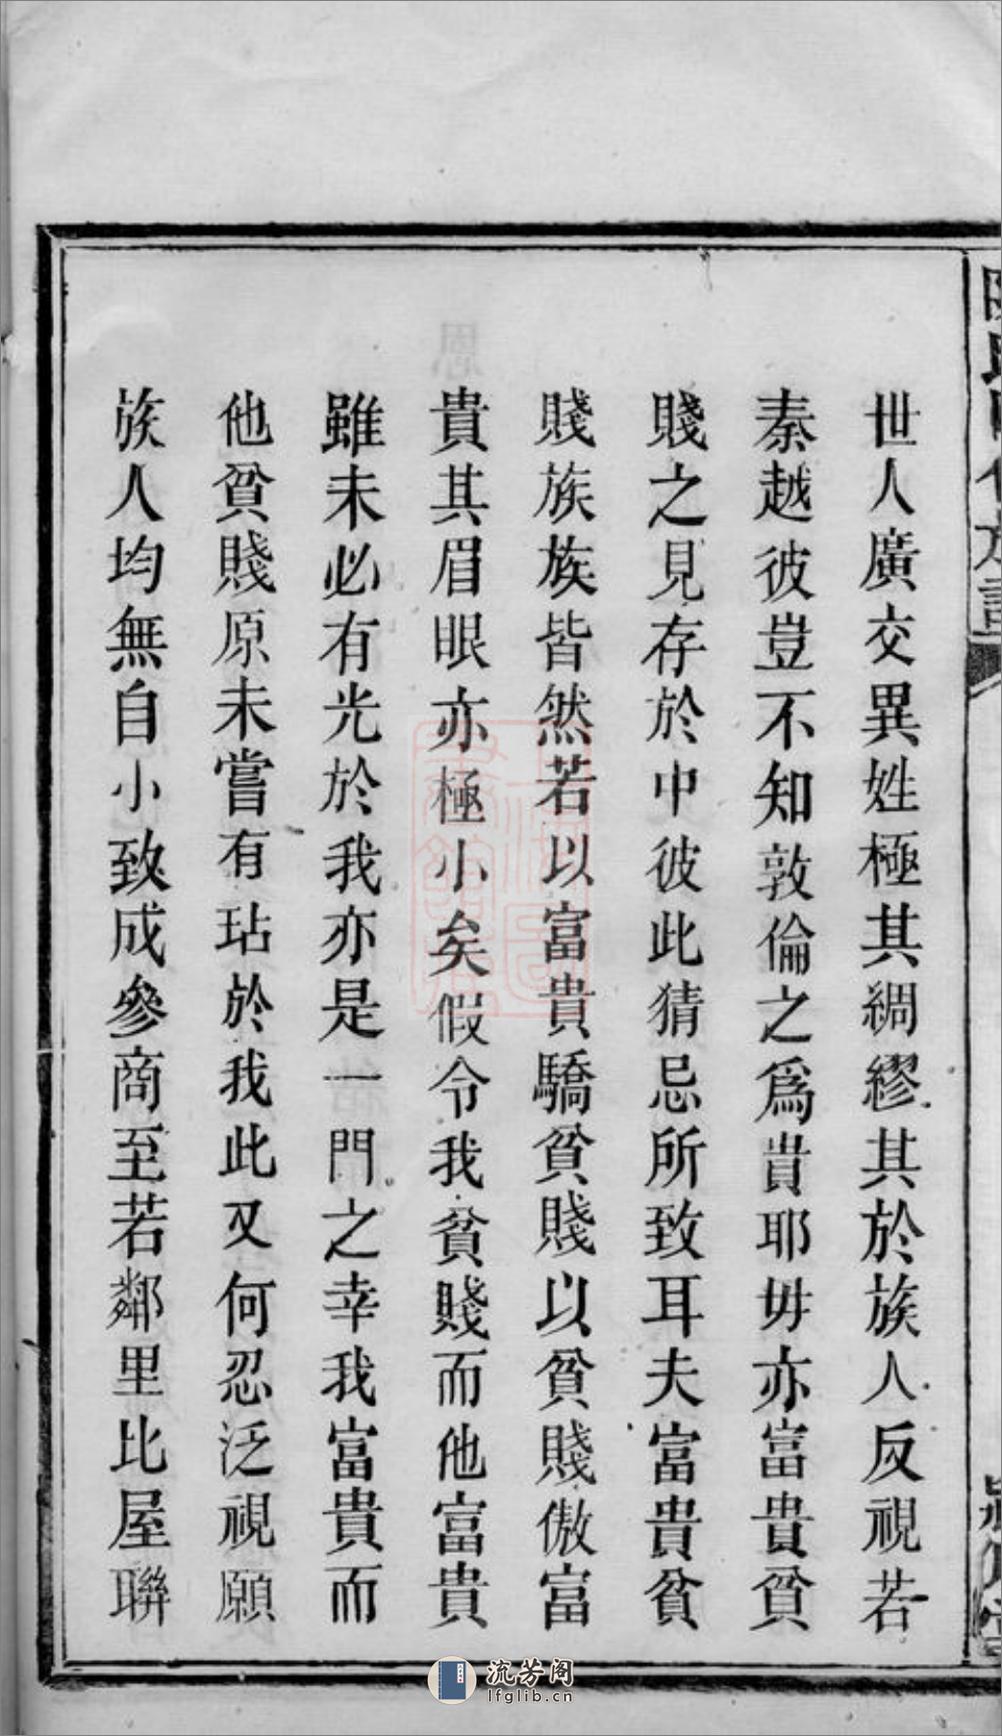 世人廣交異姓極其綢繆其於族人反視若
秦越彼豈不知敦倫之爲貴耶毋亦富貴貧
賤之見存於中彼此猜忌所致耳夫富貴貧
賤族族皆然若以富貴驕貧賤以貧賤傲富
貴其眉眼亦極小矣假令我貧賤而他富貴
雖未必有光於我亦是一門之幸我富貴而
他貧賤原未嘗有玷於我此又何忍泛視願
族人均無自小致成參商至若鄰里比屋聯
流芳阁
lfglib.cn